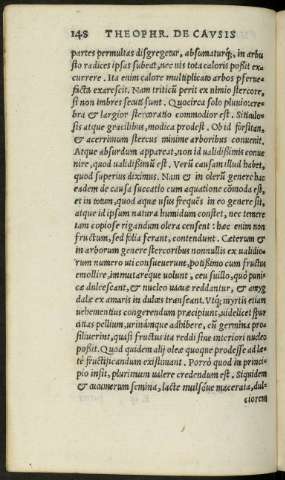 148 THEOPHR. DE CAVSIS
partes permultas disgregetur, absumaturq́;, in arbu
sto radices ipsas subeat, nec uis tota caloris possit ex=
currere. Ita enim calore multiplicato arbos perue=
facta exarescit. Nam triticū perit ex nimio stercore,
si non imbres secuti sunt. Quocirca solo pluuio cre=
bra & largior stercoratio commodior est. Siticulo=
sis atque gracilibus, modica prodest. Ob id forsitan,
& acerrimum stercus minime arboribus conuenit.
Atque absurdum appareat, non id ualidissimis conue
nire, quod ualidissimū est. Verū causam illud habet,
quod superius diximus. Nam & in olerū genere hac
eadem de causa succatio cum aquatione cōmoda est,
et in totum, quod aquæ usus frequēs in eo genere sit,
atque id ipsum natura humidum constet, nec temere
tam copiose rigandum olera censent: hæc enim non
fructum, sed folia ferant, contendunt. Cæterum &
in arborum genere stercoribus nonnullis ex ualidio=
rum numero uti consueuerunt, potissimo cum fructus
emollire, immutareque uolunt, ceu suillo, quo punic
cæ dulcescant, & nucleo uacuæ reddantur, & amyg
dalæ ex amaris in dulces transeant. Vtq́; myrtis etiam
uehementius congerendum præcipiunt, uidelicet spur
citias pellium, urinámque adhibere, cū germina pro=
siliuerint, quasi fructus ita reddi sine interiori nucleo
possit. Quod quidem alij oleæ quoque prodesse ad læ=
te fructificandum existimant. Porrò quod in princi=
pio insit, plurimum ualere credendum est. Siquidem
& cucumerum semina, lacte mulsóue macerata, dul=
ciorem